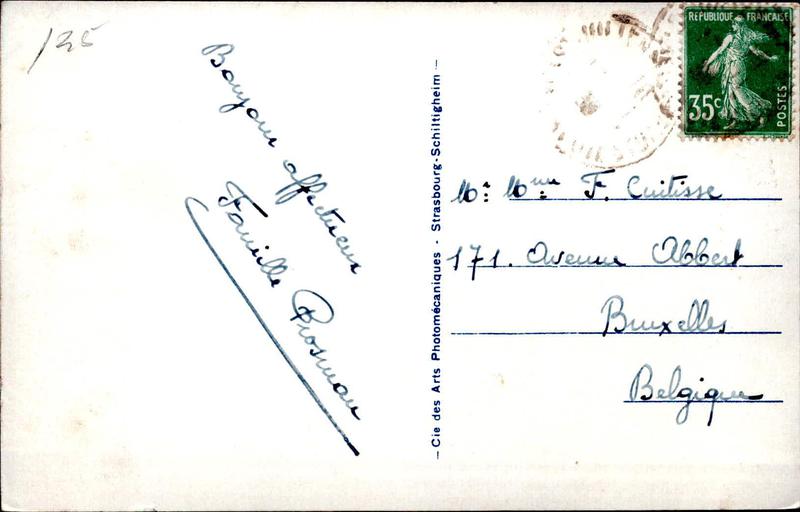 125
Bonjour affectueux
Famille Prosman
— Cie des Arts Photomécaniques - Strasbourg-Schiltigheim —
RÉPUBLIQUE FRANÇAISE
35c
POSTES
Mr Mme F. Cuitisse
171. Avenue Albert
Bruxelles
Belgique